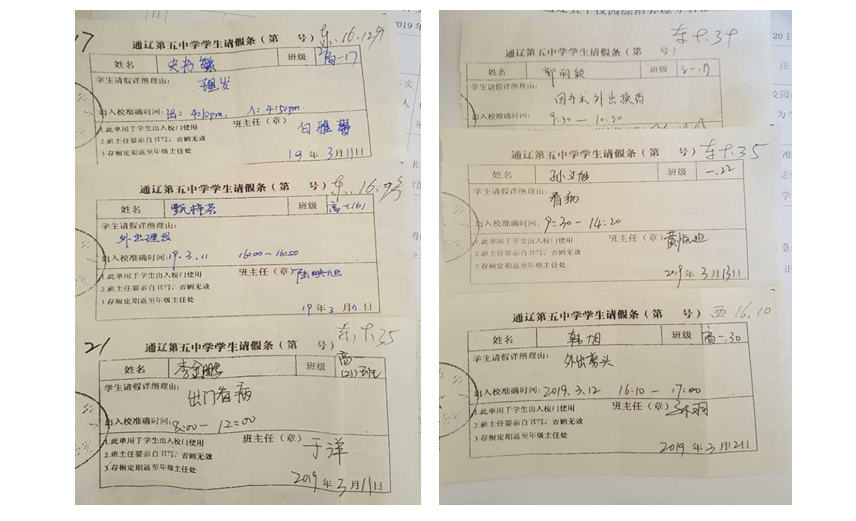 17
通辽第五中学学生请假条（第　　号）
东.16.12分
姓名
班级
高一17
学生请假详细理由:
理发
出入校准确时间: 出: 4:10pm. 入: 4:50pm.
1.此单用于学生出入校门使用
班主任（章）
2.班主任要亲自书写，否则无效
3.存根定期返至年级主任处
19 年 3 月 11 日
通辽第五中学学生请假条（第　　号）
东.16.9分
姓名
班级
学生请假详细理由:
外出理发
出入校准确时间: 19.3.11 16:00～16:50
1.此单用于学生出入校门使用
班主任（章）
2.班主任要亲自书写，否则无效
3.存根定期返至年级主任处
19 年 3 月 11 日
21
通辽第五中学学生请假条（第　　号）
姓名
李金鹏
班级
高一
(21)班
学生请假详细理由:
出门看病
出入校准确时间:
8:00－12:00
1.此单用于学生出入校门使用
班主任（章）
2.班主任要亲自书写，否则无效
于洋
3.存根定期返至年级主任处
2019 年 3 月 11 日
通辽第五中学学生请假条（第　　号）
姓名
班级
学生请假详细理由:
因手术外出换药
出入校准确时间:
9:30－10:30
1.此单用于学生出入校门使用
通辽第五中学学生请假条（第　　号）
姓名
孙文旭
班级
一.22
学生请假详细理由:
看病
出入校准确时间: 9:30－14:20
1.此单用于学生出入校门使用
班主任（章）
2.班主任要亲自书写，否则无效
3.存根定期返至年级主任处
2019 年 3 月 13 日
通辽第五中学学生请假条（第　　号）
西16.10
姓名
韩旭
班级
高一.30
学生请假详细理由:
外出剪头
出入校准确时间: 2019.3.12 16:10－17:00
1.此单用于学生出入校门使用
班主任（章）
2.班主任要亲自书写，否则无效
3.存根定期返至年级主任处
2019 年 3 月 12 日